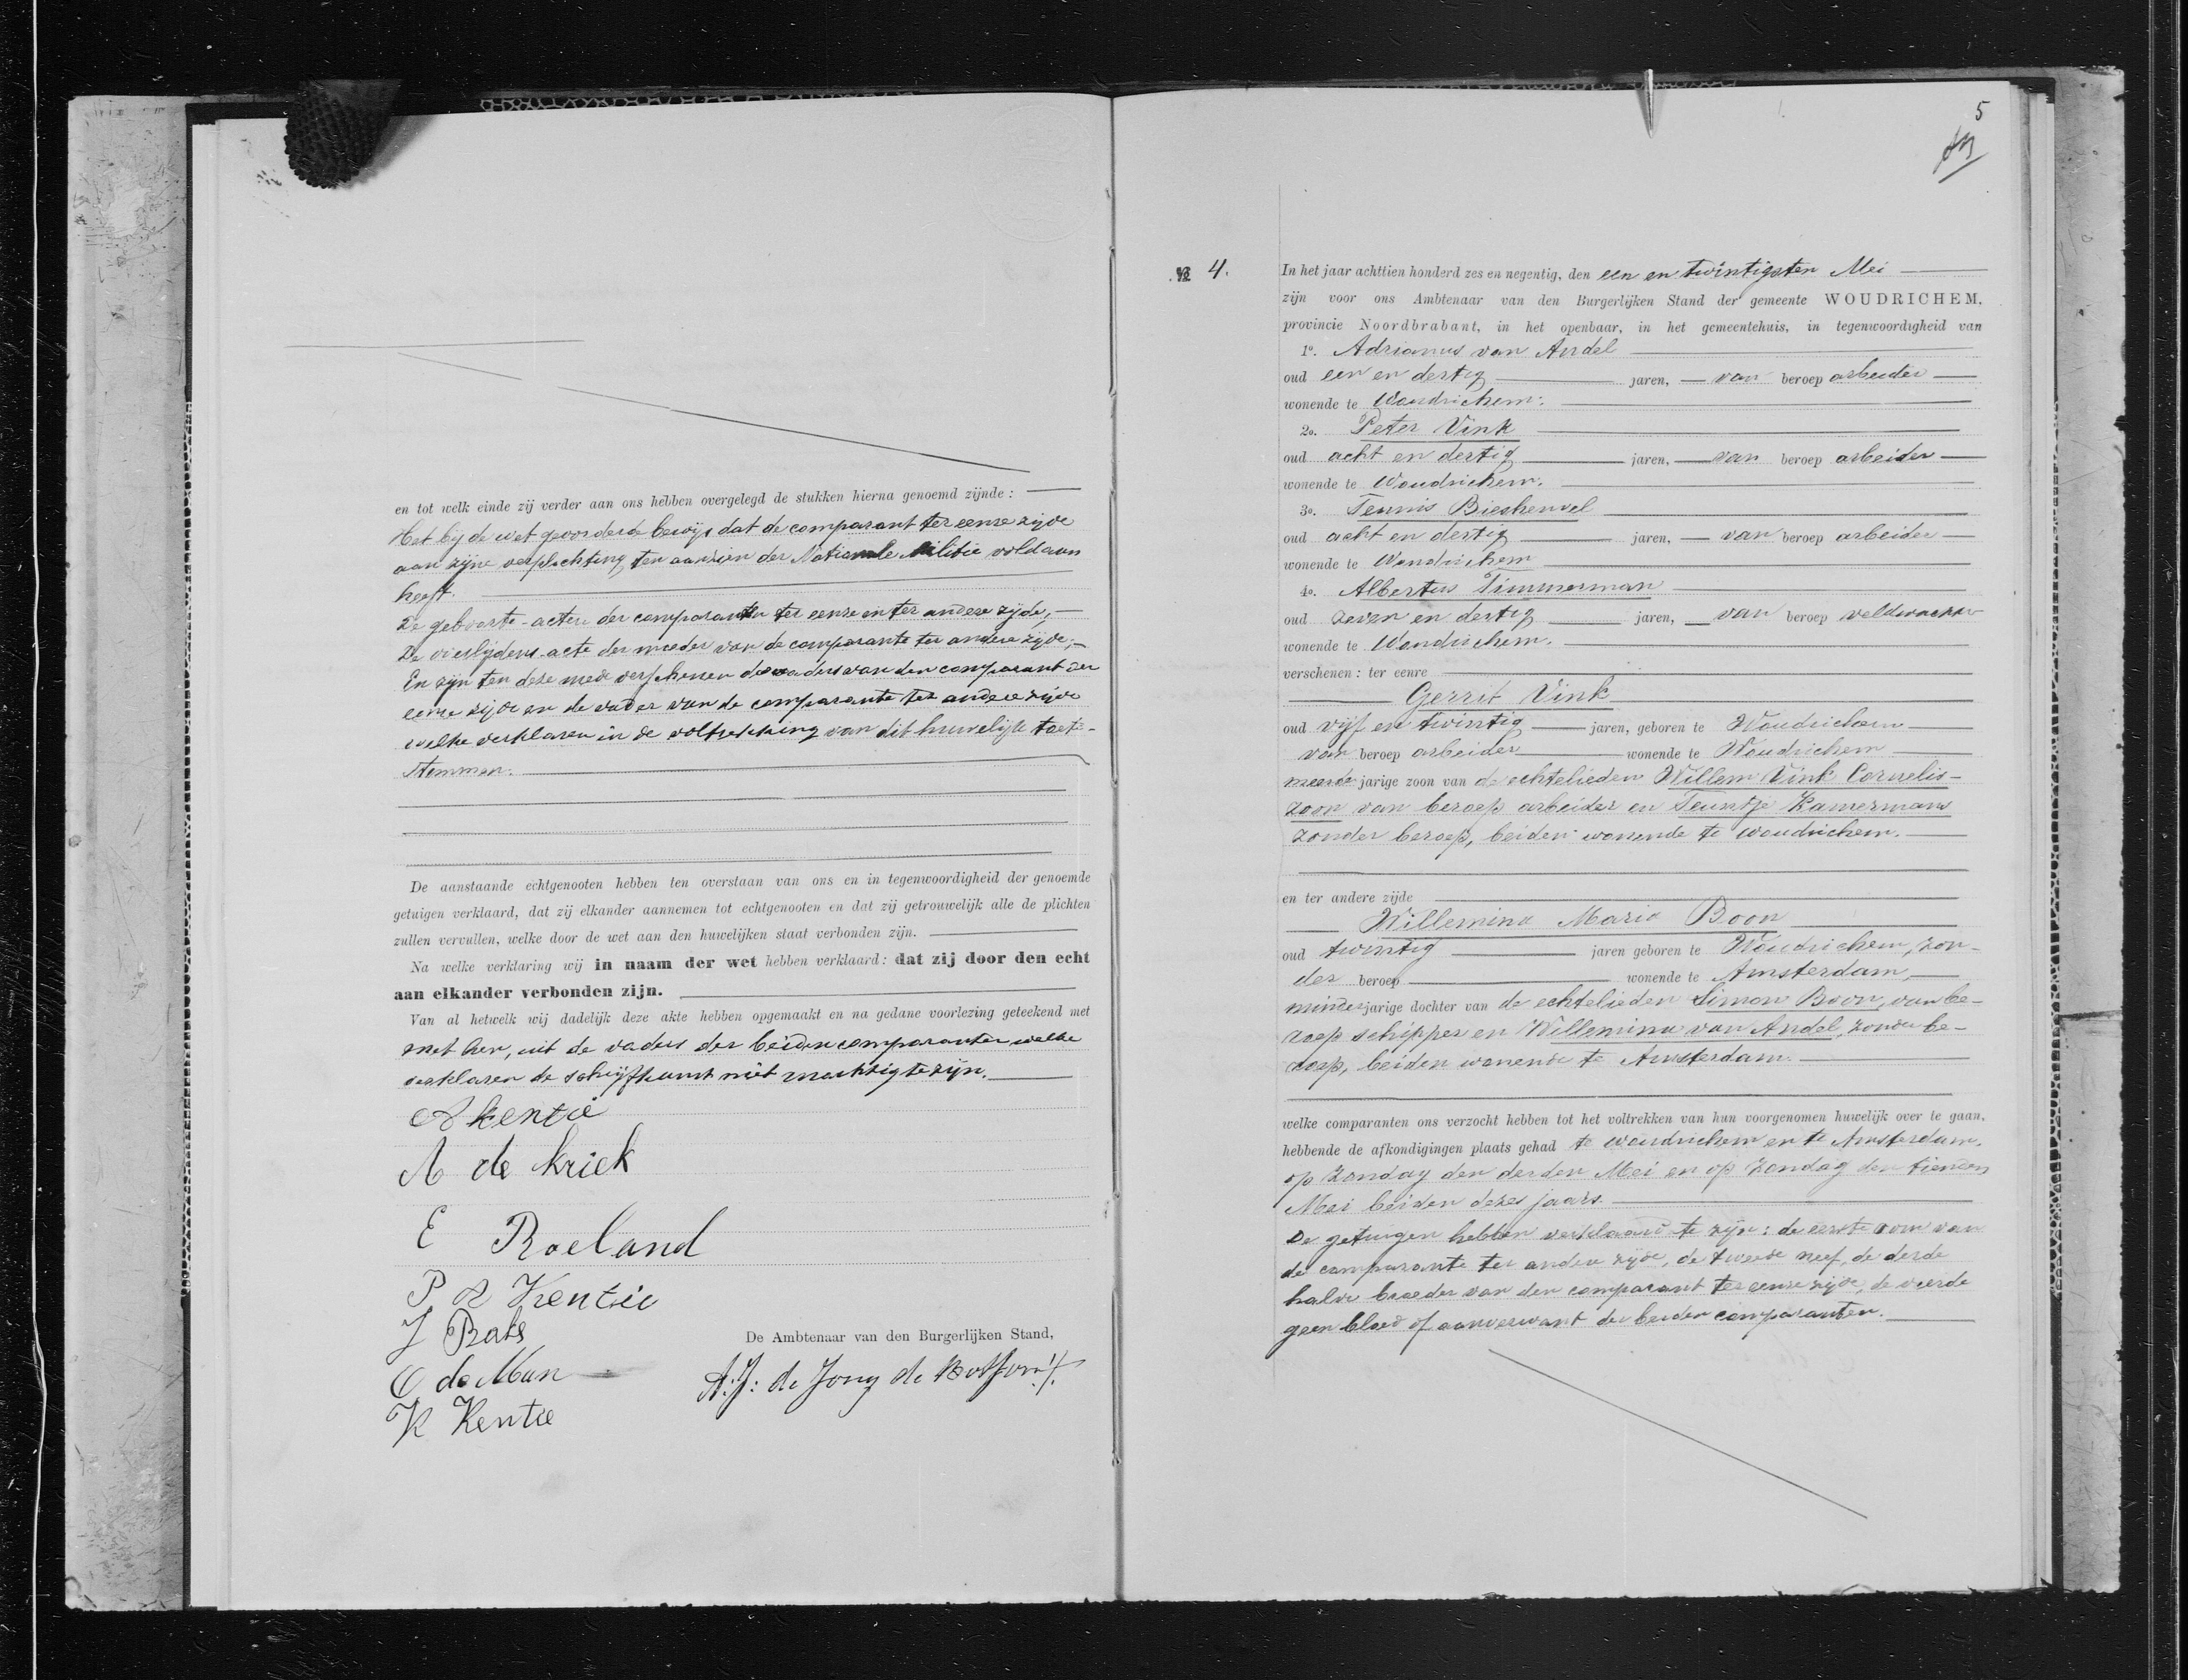 en tot welk einde zij verder aan ons hebben overgelegd de stukken hierna genoemd zijnde :
Het bij de wet gevorderde bewijs dat de comparant ter eenre zijde
aan zijne verplichting ten aanzien der Nationale Militie voldaan
heeft.
De geboorte-acten der comparanten ter eenre en ter andere zijde,
De overlijdens-acte der moeder van de comparante ter andere zijde;
En zijn ten deze mede verschenen de vaders van den comparant ter
eenre zijde en de vader van de comparante ter andere zijde
welke verklaren in de voltrekking van dit huwelijk toete-
stemmen.
De aanstaande echtgenooten hebben ten overstaan van ons en in tegenwoordigheid der genoemde
getuigen verklaard, dat zij elkander aannemen tot echtgenooten en dat zij getrouwelijk alle de plichten
zullen vervullen, welke door de wet aan den huwelijken staat verbonden zijn.
Na welke verklaring wij in naam der wet hebben verklaard: dat zij door den echt
aan elkander verbonden zijn.
Van al hetwelk wij dadelijk deze akte hebben opgemaakt en na gedane voorlezing geteekend met
met hen, uit de vaders der beiden comparanten welke
verklaren de schrijfkunst niet machtig te zijn.
A Kentie
A de Kriek
E Roeland
P A Kentie
J Rats
C de Man
K Kentie
De Ambtenaar van den Burgerlijken Stand,
A: J: de Jong de
5
№ 4.
In het jaar achttien honderd zes en negentig, den een en twintigsten Mei
zijn voor ons Ambtenaar van den Burgerlijken Stand der gemeente WOUDRICHEM,
provincie Noordbrabant, in het openbaar, in het gemeentehuis, in tegenwoordigheid van
1o. Adrianus van Andel
oud een en dertig jaren, van beroep arbeider
wonende te Woudrichem:
2o. Peter Vink
oud acht en dertig jaren, van beroep arbeider
wonende te Woudrichem.
3o. Teunis Biesheuvel
oud acht en dertig jaren, van beroep arbeider
wonende te Woudrichem
4o. Albertus Timmerman
oud zeven en dertig jaren, van beroep veldwachter
wonende te Woudrichem.
verschenen: ter eenre
Gerrit Vink
oud vijf en twintig jaren, geboren te Woudrichem
van beroep arbeider wonende te Woudrichem
meerderjarige zoon van de echtelieden Willem Vink Cornelis-
zoon van beroep arbeider en Teuntje Kamermans
zonder beroep, beiden wonende te Woudrichem.
en ter andere zijde
Willemina Maria Boon
oud twintig jaren geboren te Woudrichem, zon-
der beroep wonende te Amsterdam,
minderjarige dochter van de echtelieden Simon Boon, van be-
roep schipper en Willemina van Andel, zonder be-
roep, beiden wonende te Amsterdam.
welke comparanten ons verzocht hebben tot het voltrekken van hun voorgenomen huwelijk over te gaan,
hebbende de afkondigingen plaats gehad te Woudrichem en te Amsterdam.
op Zondag den derden Mei en op Zondag den tienden
Mei beiden dezes jaars.
De getuigen hebben verklaard te zijn: de eerste oom van
de comparante ter andere zijde, de tweede neef, de derde
halve broeder van den comparant ter eenre zijde, de vierde
geen bloed of aanverwant der beiden comparanten.